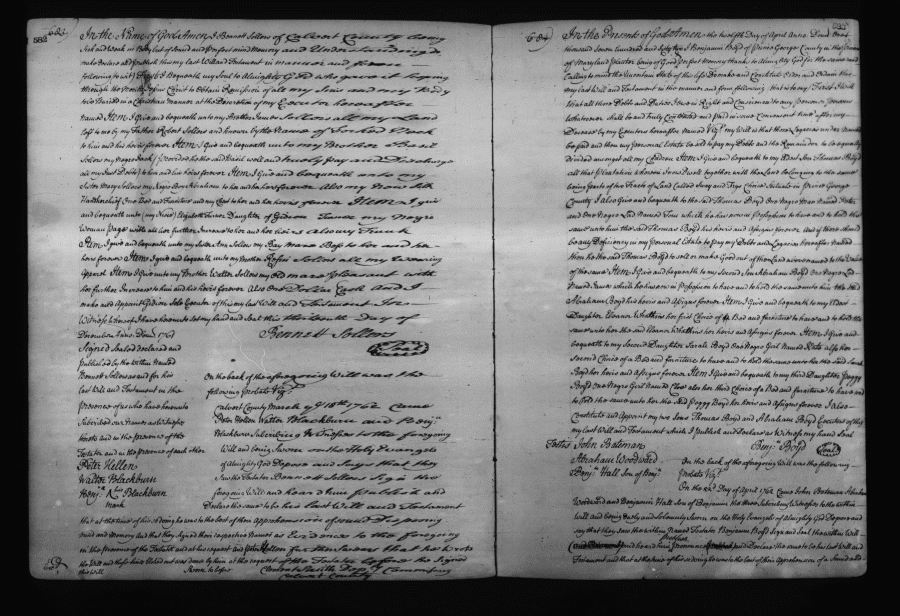 582
In the Name of God Amen I Bennett Sollers of Calvert County being
Sick and Weak in Body but of Sound and Perfect mind Memory and Understanding do
make declare and publish this my last Will and Testament in manner and form
following to wit I give & Bequeath my Soul to Almighty God who gave it hoping
through the merits of Jesus Christ to Obtain Remission of all my Sins and my Body
to be Buried in a Christian manner at the Discretion of my Executor hereafter
Named Item I give and bequeath unto my Brother James Sollers all my Land
left to me by my Father Robert Sollers and known by the Name of Forked Neck
to him and his heirs forever Item I give and bequeath unto my Brother Basil
Sollers my Negro Jack (provided he the said Basil will and truely pay and Discharge
all my Just Debts) to him and his heirs forever Item I give and bequeath unto my
Sister Mary Sollers my Negro Boy Abraham to her and her heirs forever Also my New Silk
Handkerchief One Bed and Furniture and my Chest to her and her heirs forever Item I give
and bequeath unto (my Niece) Elizabeth Turner Daughter of Gideon Turner my Negro
Woman Page with all her further Increase to her and her heirs Also my Trunk
Item I give and bequeath unto my Sister Ann Sollers my Bay Mare Bess to her and her
heirs forever Item I give and bequeath unto my Brother Sollers all my Wearing
Apparel Item I give unto my Brother Walter Sollers my Old mare Pleasant with
her further Increase to him and his heirs forever Also One Dollar Cash And I
make and Appoint Gideon Sole Executor of this my last Will and Testament In
Witness whereof I have hereunto set my hand and Seal this thirteenth Day of
December Anno Domi 1761
Bennett Sollers
Seal
Signed Sealed declared and
Published by the within Named
Bennett Sollers as and for his
last Will and Testament in the
presence of us who have hereunto
Subscribed our Names as Witnesses
hereto and in the presence of the
Testator and in the presence of each other
Peter Hellen
Walter Blackburn
Benj. his Blackburn
mark
On the back of the aforegoing Will was the
following probate Viz
Calvert County March 18th 1762 Came
Peter Hellen Walter Blackburn and Benj
Blackburn Subscribing Witnesses to the foregoing
Will and being Sworn on the Holy Evangels
of Almighty God Depose and Says that they
Saw the Testator Bennett Sollers Sign the
foregoing Will and heard him publish and
Declare the same to be his last Will and Testament
that at the time of his so doing he was to the best of their apprehension of sound Disposing
mind and Memory and that they Signed their respective Names as Evidence to the foregoing
in the presence of the Testator and at his request and Peter Hellen further Swears that he wrote
the Will and those Interlined was done by him at the request of the Testator before he Signed
this Will
Sworn to before
Smith Dep Commissary
Calvert County
In the Presents of God Amen the twelfth Day of April Anno Domi One
thousand Seven hundred and fifty five I Benjamin Boyd of Prince Georges County in the Province
of Maryland Planter being of Good Perfect Memory thanks to Almighty God for the same and
Calling to mind the Uncertain state of this life Do make and Constitute Ordain and Ordain this
my last Will and Testament in the manner and form following that is to say First I Will
that all those Debts and Duties I owe in Right and Conscience to any Person or Persons
Whatsoever shall be and truly Contented and Paid in some Convenient time after my
Decease by my Executors hereafter named Viz my Will is that these Legacies under Named
be paid and then my Personal Estate be sold to pay my Debts and the Remainder to be equally
divided amongst all my Children Item I give and bequeath to my Eldest Son Thomas Boyd
all that Plantation whereon I now Dwell together with the Land belonging to the same
being parts of the Tracts of Land Called Ivey and Taps Choice Situate in Prince Georges
County I also Give and bequeath to the said Thomas Boyd One Negro Man Named Peter
and One Negro Lad Named Tom which he has now in Possession to have and to hold the
same unto him the said Thomas Boyd his heirs and Assigns forever And if there should
be any Deficiency in my Personal Estate to Pay my Debts and Legacies hereafter Named
then he the said Thomas Boyd to sell or make Good out of the Land above named to the Value
of the same Item I give and bequeath to my Second Son Abraham Boyd One Negro Lad
Named James which he has now in Possession to have and to hold the same unto him the said
Abraham Boyd his heirs and Assigns forever Item I Give and bequeath to my Eldest
Daughter Eleanor Watkins her first Choice of a Bed and furniture to have and to hold the
same unto her the said Eleanor Watkins her heirs and Assigns forever Item I give and
bequeath to my Second Daughter Sarah Boyd One Negro Girl Named Kate also her
second Choice of a Bed and furniture to have and to hold the same unto her the said Sarah
Boyd her heirs and Assigns forever Item I Give and bequeath to my third Daughter Peggy
Boyd One Negro Girl Named Chloe also her third Choice of a Bed and furniture to have and
to hold the same unto her the said Peggy Boyd her heirs and Assigns forever I also
Constitute and Appoint my two Sons Thomas Boyd and Abraham Boyd Executors of this
my last Will and Testament which I Publish and Declare as Witness my hand Seal
Testes John Bateman
Benj. Boyd
Seal
Abraham Woodward
Benj. Hall Son of Benj.
On the back of the aforegoing Will was the following
Probate Viz
On the 22d Day of April 1762 Came John Bateman Abraham
Woodward and Benjamin Hall Son of Benjamin the three Subscribing Witnesses to the within
Will and being duely and Solemnly Sworn on the Holy Evangels of Almighty God Depose and
say that they saw the within Named Testator Benjamin Boyd Sign and Seal the within Will
and heard him Pronounce and Declare the same to be his last Will and
Testament and that at the time of his so doing he was to the best of their Apprehension of a Sound and